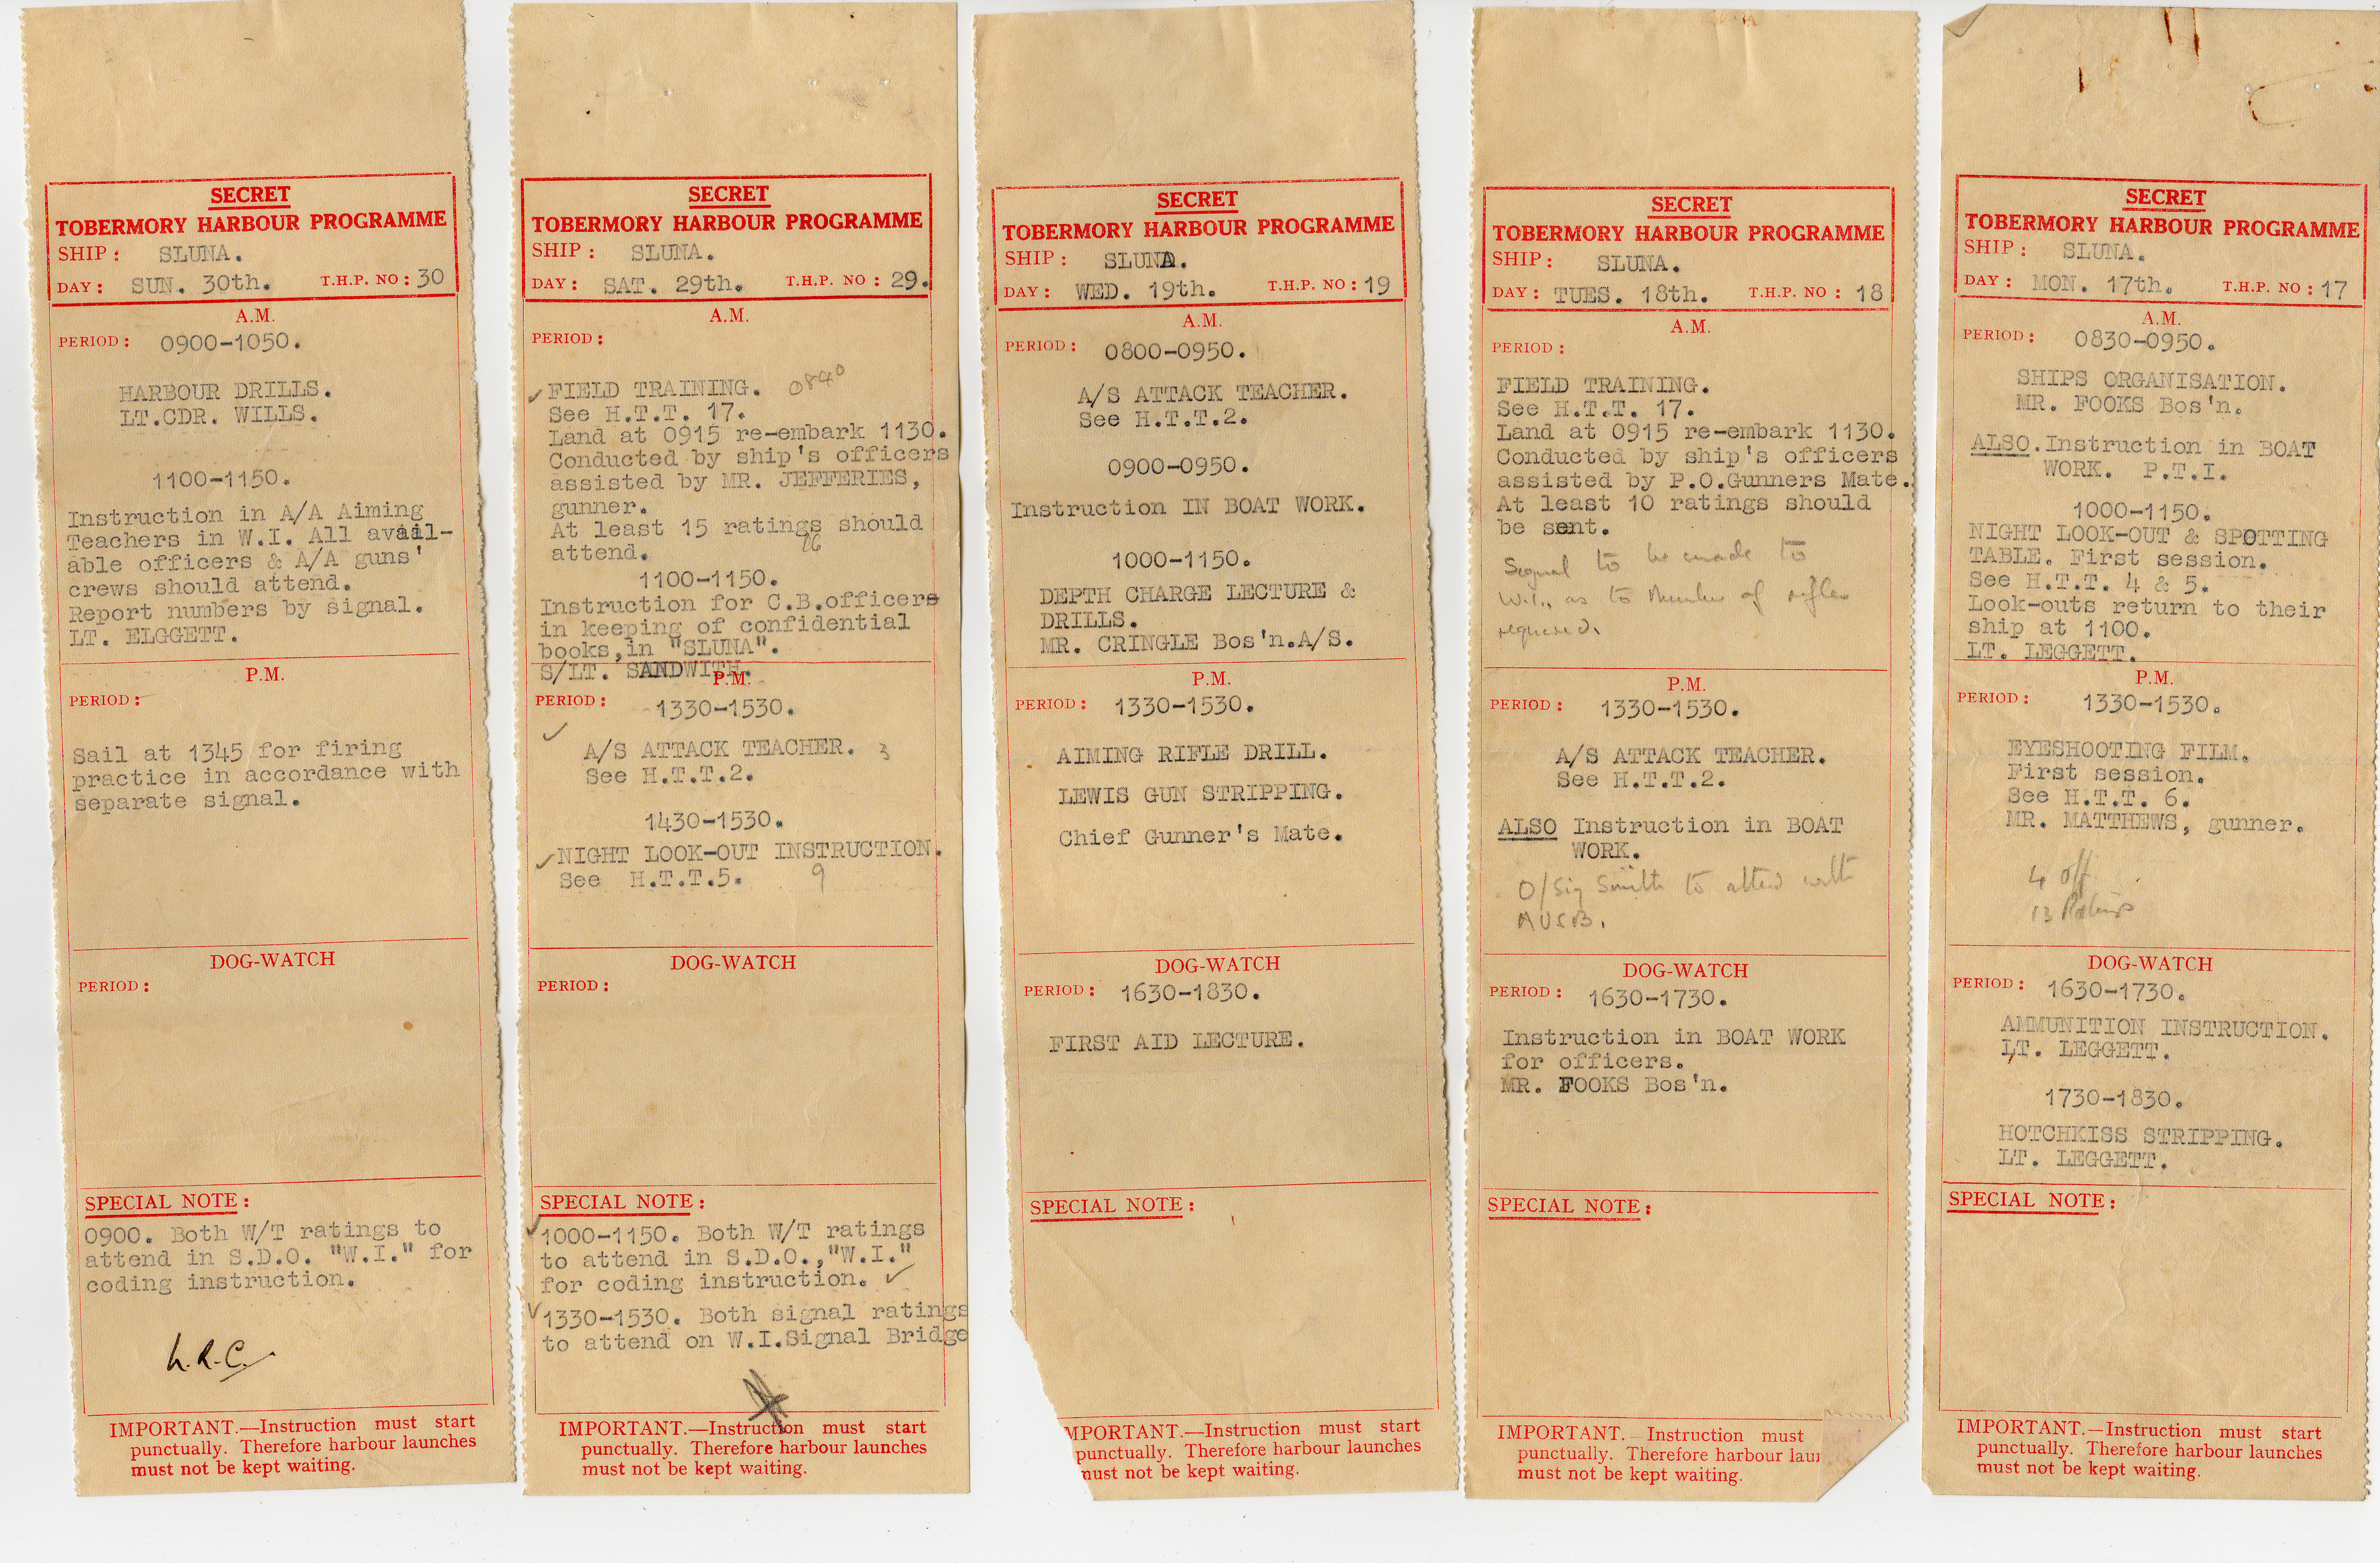 SECRET
TOBERMORY HARBOUR PROGRAMME
SHIP: SLUNA.
DAY: SUN. 30th. T.H.P. NO: 30
A.M.
PERIOD: 0900-1050.
HARBOUR DRILLS.
LT.CDR. WILLS.
1100-1150.
Instruction in A/A Aiming
Teachers in W.I. All avail-
able officers & A/A guns'
crews should attend.
Report numbers by signal.
LT. ELGGETT.
P.M.
PERIOD:
Sail at 1345 for firing
practice in accordance with
separate signal.
DOG-WATCH
PERIOD:
SPECIAL NOTE:
0900. Both W/T ratings to
attend in S.D.O. "W.I." for
coding instruction.
IMPORTANT.—Instruction must start
punctually. Therefore harbour launches
must not be kept waiting.
SECRET
TOBERMORY HARBOUR PROGRAMME
SHIP: SLUNA.
DAY: SAT. 29th. T.H.P. NO: 29.
A.M.
PERIOD:
✓FIELD TRAINING. 0840
See H.T.T. 17.
Land at 0915 re-embark 1130.
Conducted by ship's officers
assisted by MR. JEFFERIES,
gunner.
At least 15 ratings should
attend. 16
1100-1150.
Instruction for C.B.officers
in keeping of confidential
books,in "SLUNA".
S/LT. SANDWITH.
P.M.
PERIOD: 1330-1530.
✓
A/S ATTACK TEACHER. 3
See H.T.T.2.
1430-1530.
✓NIGHT LOOK-OUT INSTRUCTION.
See H.T.T.5. 9
DOG-WATCH
PERIOD:
SPECIAL NOTE:
✓1000-1150. Both W/T ratings
to attend in S.D.O.,"W.I."
for coding instruction. ✓
✓1330-1530. Both signal ratings
to attend on W.I.Signal Bridge
IMPORTANT.—Instruction must start
punctually. Therefore harbour launches
must not be kept waiting.
SECRET
TOBERMORY HARBOUR PROGRAMME
SHIP: SLUNA.
DAY: WED. 19th. T.H.P. NO: 19
A.M.
PERIOD: 0800-0950.
A/S ATTACK TEACHER.
See H.T.T.2.
0900-0950.
Instruction IN BOAT WORK.
1000-1150.
DEPTH CHARGE LECTURE &
DRILLS.
MR. CRINGLE Bos'n.A/S.
P.M.
PERIOD: 1330-1530.
AIMING RIFLE DRILL.
LEWIS GUN STRIPPING.
Chief Gunner's Mate.
DOG-WATCH
PERIOD: 1630-1830.
FIRST AID LECTURE.
SPECIAL NOTE:
MPORTANT.—Instruction must start
punctually. Therefore harbour launches
must not be kept waiting.
SECRET
TOBERMORY HARBOUR PROGRAMME
SHIP: SLUNA.
DAY: TUES. 18th. T.H.P. NO: 18
A.M.
PERIOD:
FIELD TRAINING.
See H.T.T. 17.
Land at 0915 re-embark 1130.
Conducted by ship's officers
assisted by P.O.Gunners Mate.
At least 10 ratings should
be sent.
Signal to be made to
W.I., as to Number of rifles
required.
P.M.
PERIOD: 1330-1530.
A/S ATTACK TEACHER.
See H.T.T.2.
ALSO Instruction in BOAT
WORK.
O/Sig Smith to attend with
DOG-WATCH
PERIOD: 1630-1730.
Instruction in BOAT WORK
for officers.
MR. FOOKS Bos'n.
SPECIAL NOTE:
IMPORTANT.—Instruction must
punctually. Therefore harbour lau
must not be kept waiting.
SECRET
TOBERMORY HARBOUR PROGRAMME
SHIP: SLUNA.
DAY: MON. 17th. T.H.P. NO: 17
A.M.
PERIOD: 0830-0950.
SHIPS ORGANISATION.
MR. FOOKS Bos'n.
ALSO.Instruction in BOAT
WORK. P.T.I.
1000-1150.
NIGHT LOOK-OUT & SPOTTING
TABLE. First session.
See H.T.T. 4 & 5.
Look-outs return to their
ship at 1100.
LT. LEGGETT.
P.M.
PERIOD: 1330-1530.
EYESHOOTING FILM.
First session.
See H.T.T. 6.
MR. MATTHEWS, gunner.
4 off
13 Ratings
DOG-WATCH
PERIOD: 1630-1730.
AMMUNITION INSTRUCTION.
LT. LEGGETT.
1730-1830.
HOTCHKISS STRIPPING.
LT. LEGGETT.
SPECIAL NOTE:
IMPORTANT.—Instruction must start
punctually. Therefore harbour launches
must not be kept waiting.